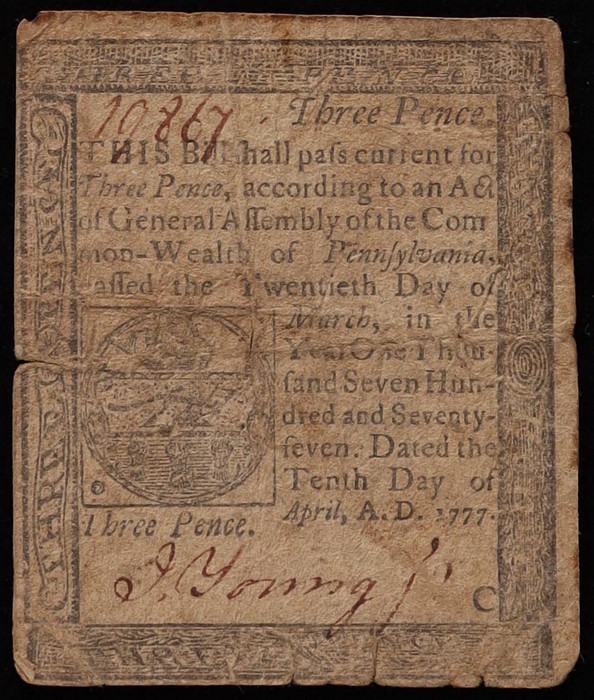 THREE PENCE
10867 Three Pence.
THIS Bill ſhall paſs current for
Three Pence, according to an Act
of General Aſſembly of the Com
mon-Wealth of Pennſylvania,
aſſed the Twentieth Day of
March, in the
Year One Thou-
ſand Seven Hun-
dred and Seventy-
ſeven. Dated the
Tenth Day of
April, A. D. 1777.
Three Pence.
J. Young Jr
C
THREE PENCE